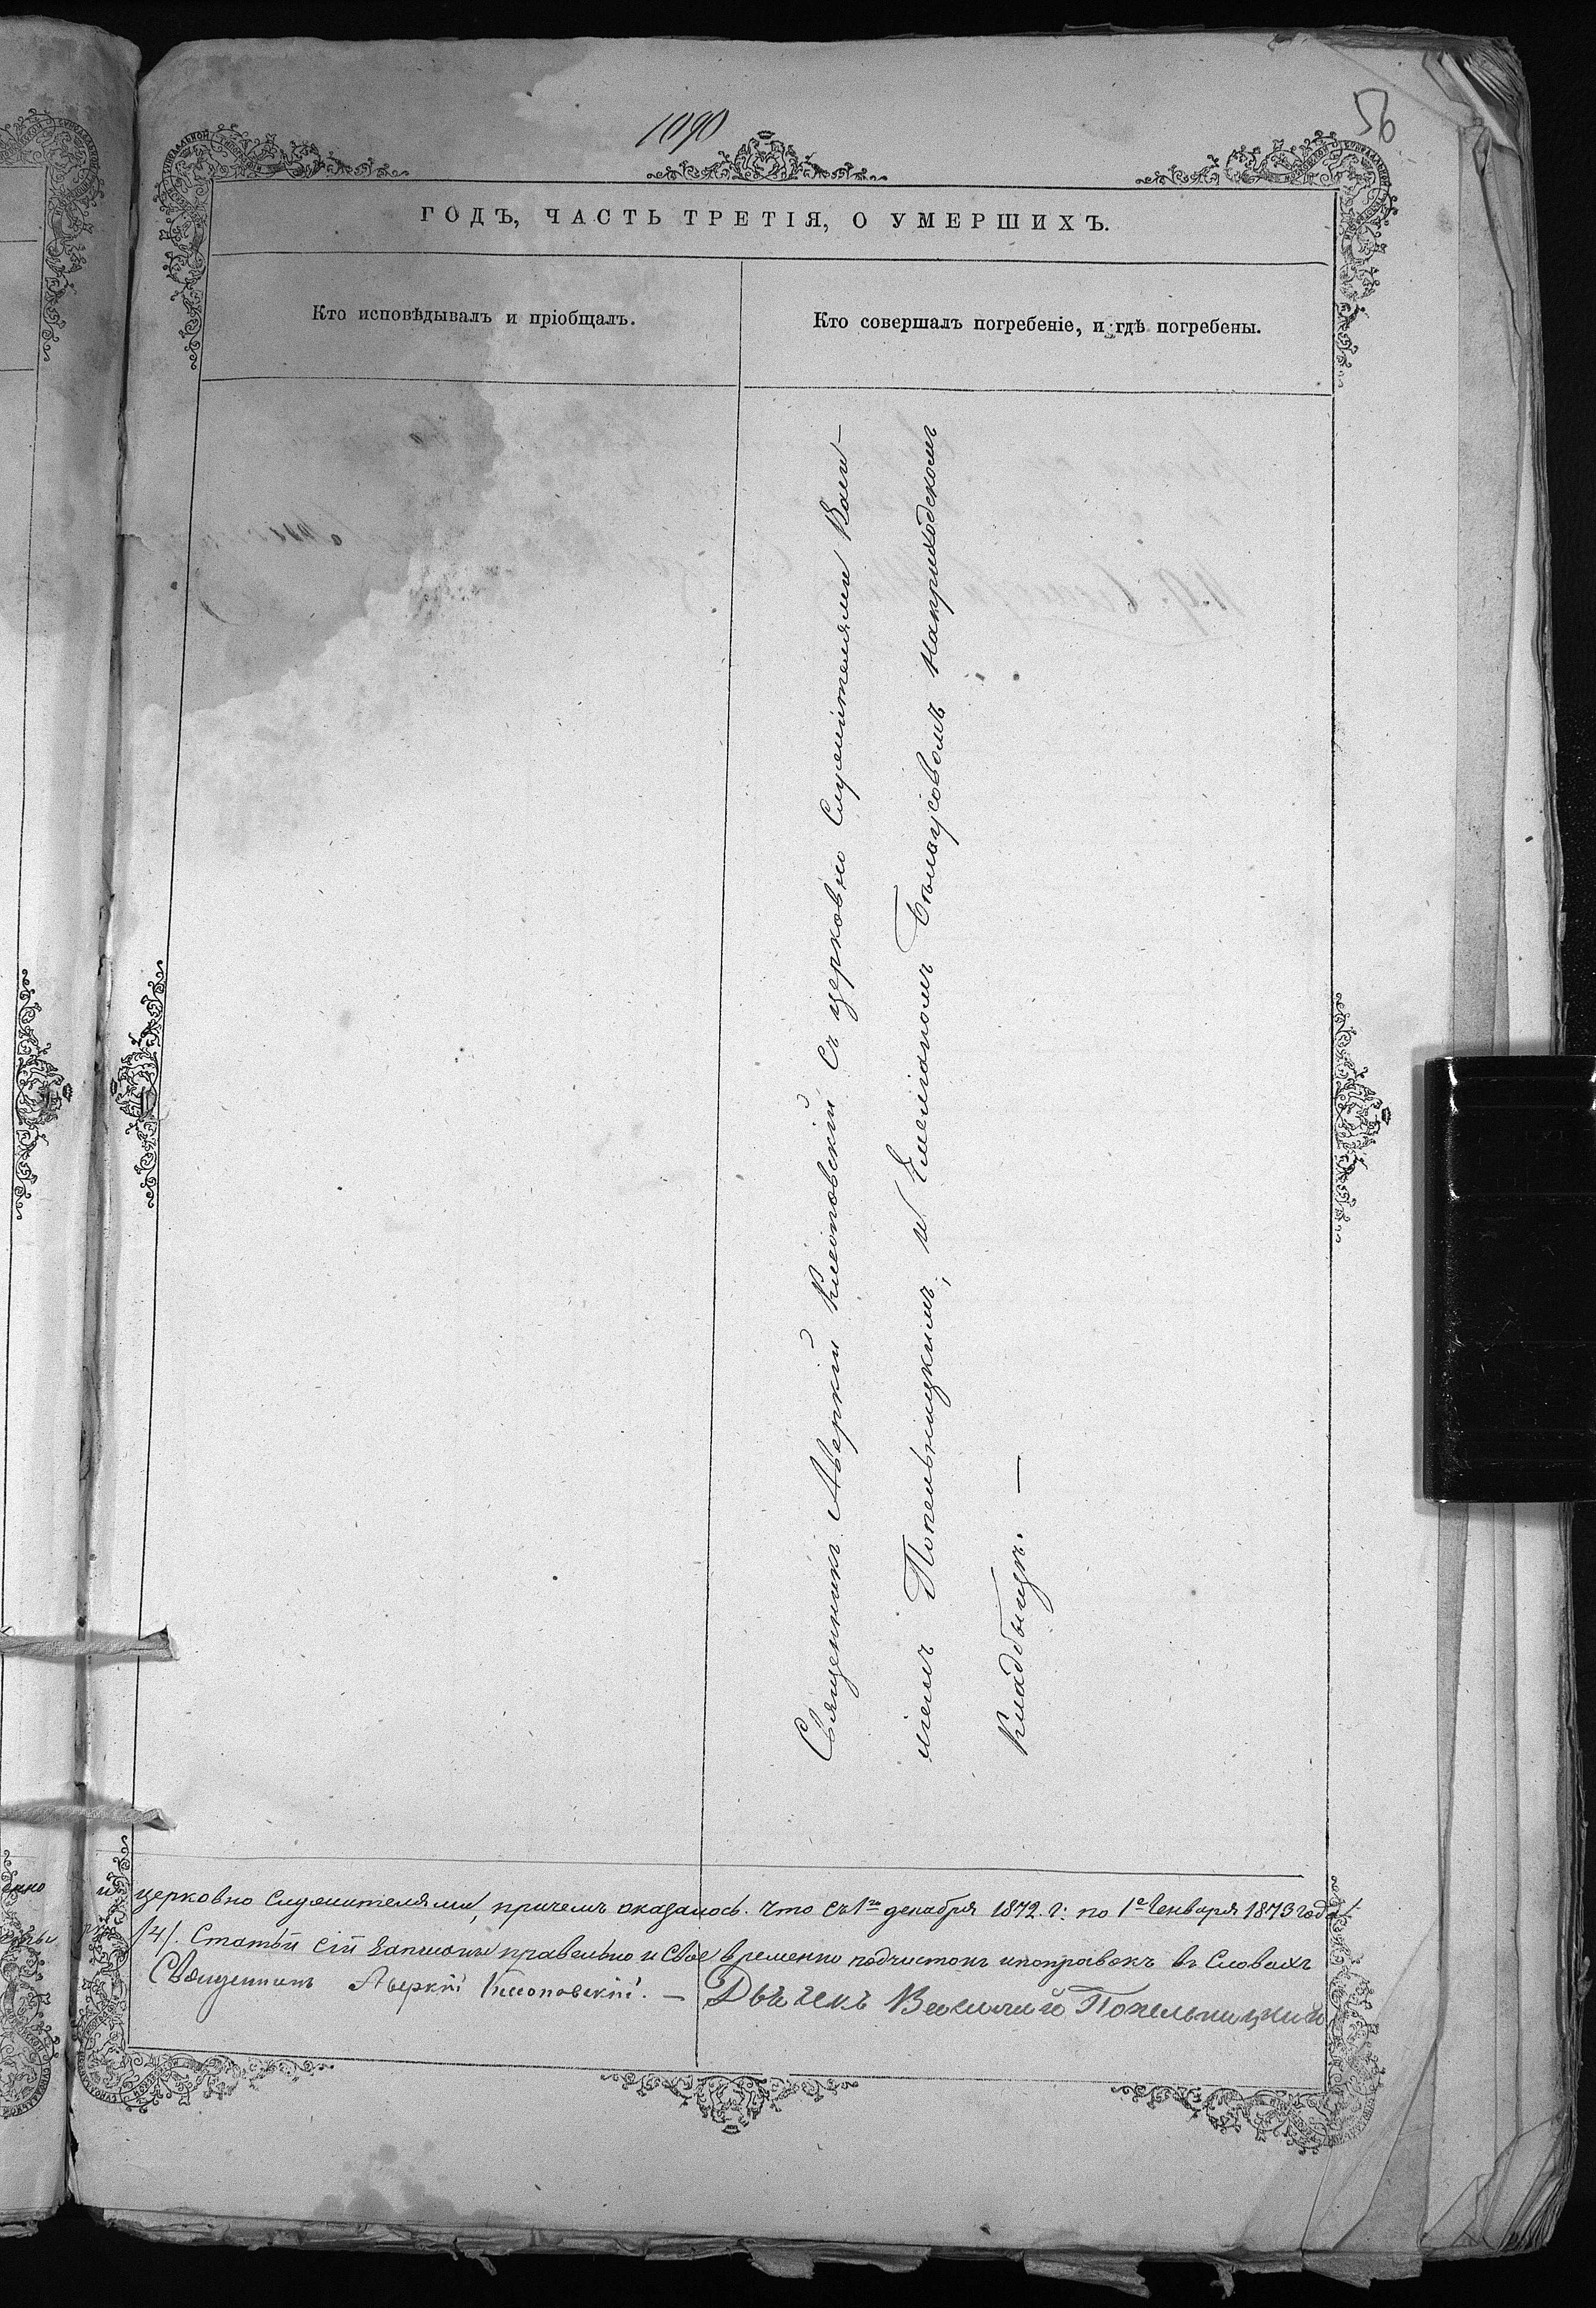 1090
56
ГОДЪ, ЧАСТЬ ТРЕТІЯ, О УМЕРШИХЪ.
Кто исповѣдывалъ и пріобщалъ.
Кто совершалъ погребеніе, и гдѣ погребены.
Священникъ Аверкій Клеоповскій съ церковно Служителями Васи-
ліемъ Попельницкимъ, и Емеліаномъ Бѣлоусовомъ наприходскомъ
кладбищѣ. —
и церковно служителями, причемъ оказалось. что съ 1го декабря 1872. г: по 1е Генваря 1873 года
/4/. Статьи сіи записаны правельно и Свое временно подчистокъ ипоправокъ въ Словахъ
Священникъ Аверкій Клеоповскій. — Дьячекъ Василий Попельницкий